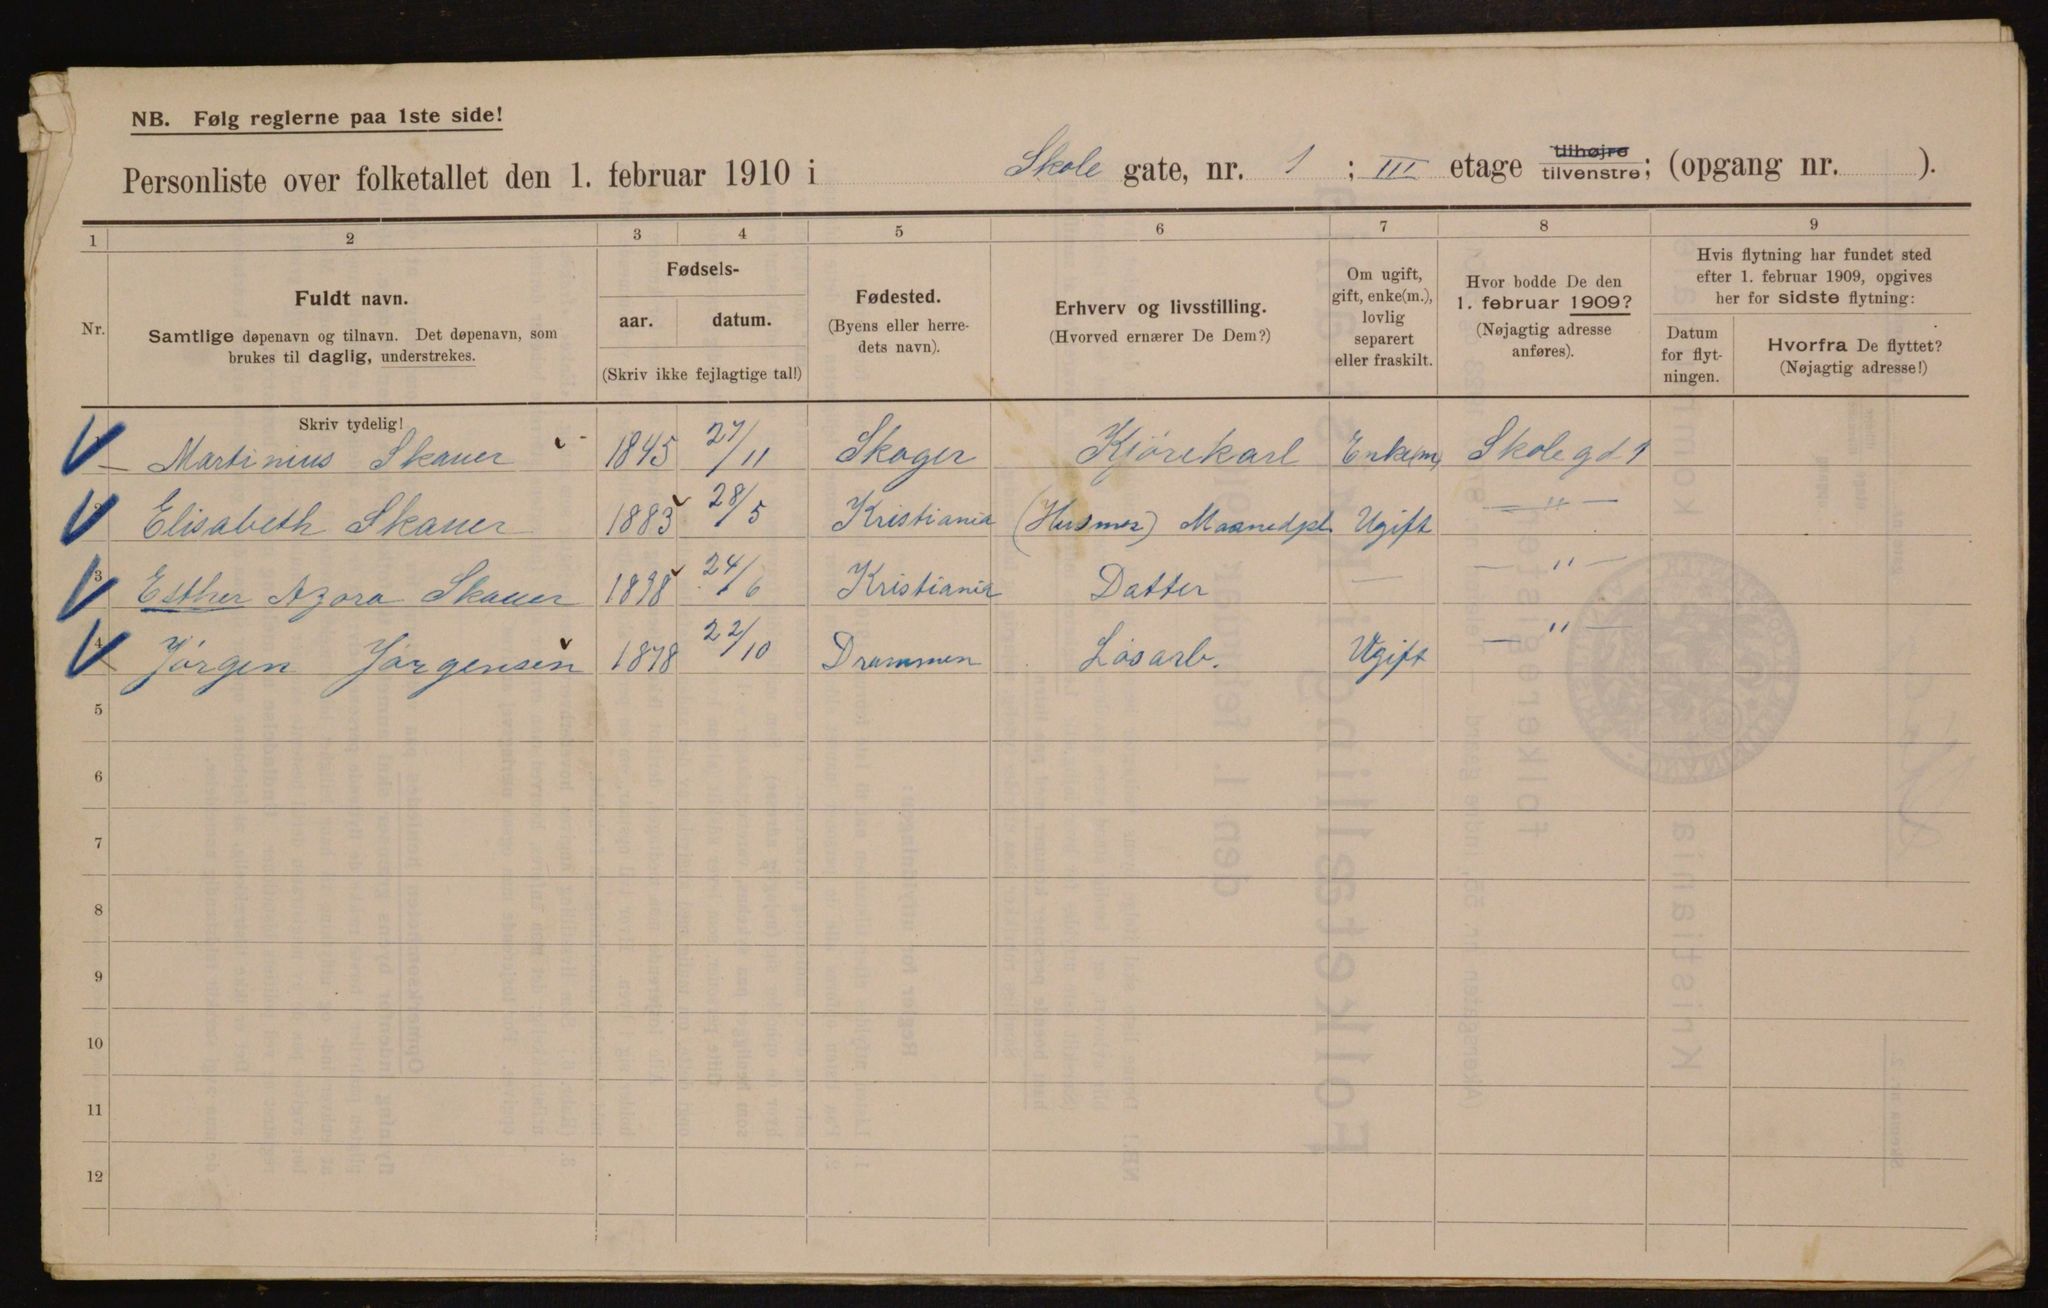 NB. Følg reglerne paa 1ste side!
Personliste over folketallet den 1. februar 1910 i Skole gate, nr. 1 ; III etage tilhøjre tilvenstre; (opgang nr. ).
1 2 3 4 5 6 7 8 9
Nr.
Fuldt navn.
Samtlige døpenavn og tilnavn. Det døpenavn, som
brukes til daglig, understrekes.
Fødsels-
aar. datum.
(Skriv ikke fejlagtige tal!)
Fødested.
(Byens eller herre-
dets navn).
Erhverv og livsstilling.
(Hvorved ernærer De Dem?)
Om ugift,
gift, enke(m.),
lovlig
separert
eller fraskilt.
Hvor bodde De den
1. februar 1909?
(Nøjagtig adresse
anføres).
Hvis flytning har fundet sted
efter 1. februar 1909, opgives
her for sidste flytning:
Datum
for flyt-
ningen.
Hvorfra De flyttet?
(Nøjagtig adresse!)
Skriv tydelig!
1 Martinius Skauer 1845 27/11 Skoger Kjørekarl Enke(m) Skolegd 1
2 Elisabeth Skauer 1883 28/5 Kristiania (Husmor) Maanedspl. Ugift — " —
3 Esther Azora Skauer 1898 24/6 Kristiania Datter — — " —
4 Jørgen Jørgensen 1878 22/10 Drammen Løsarb. Ugift — " —
5
6
7
8
9
10
11
12